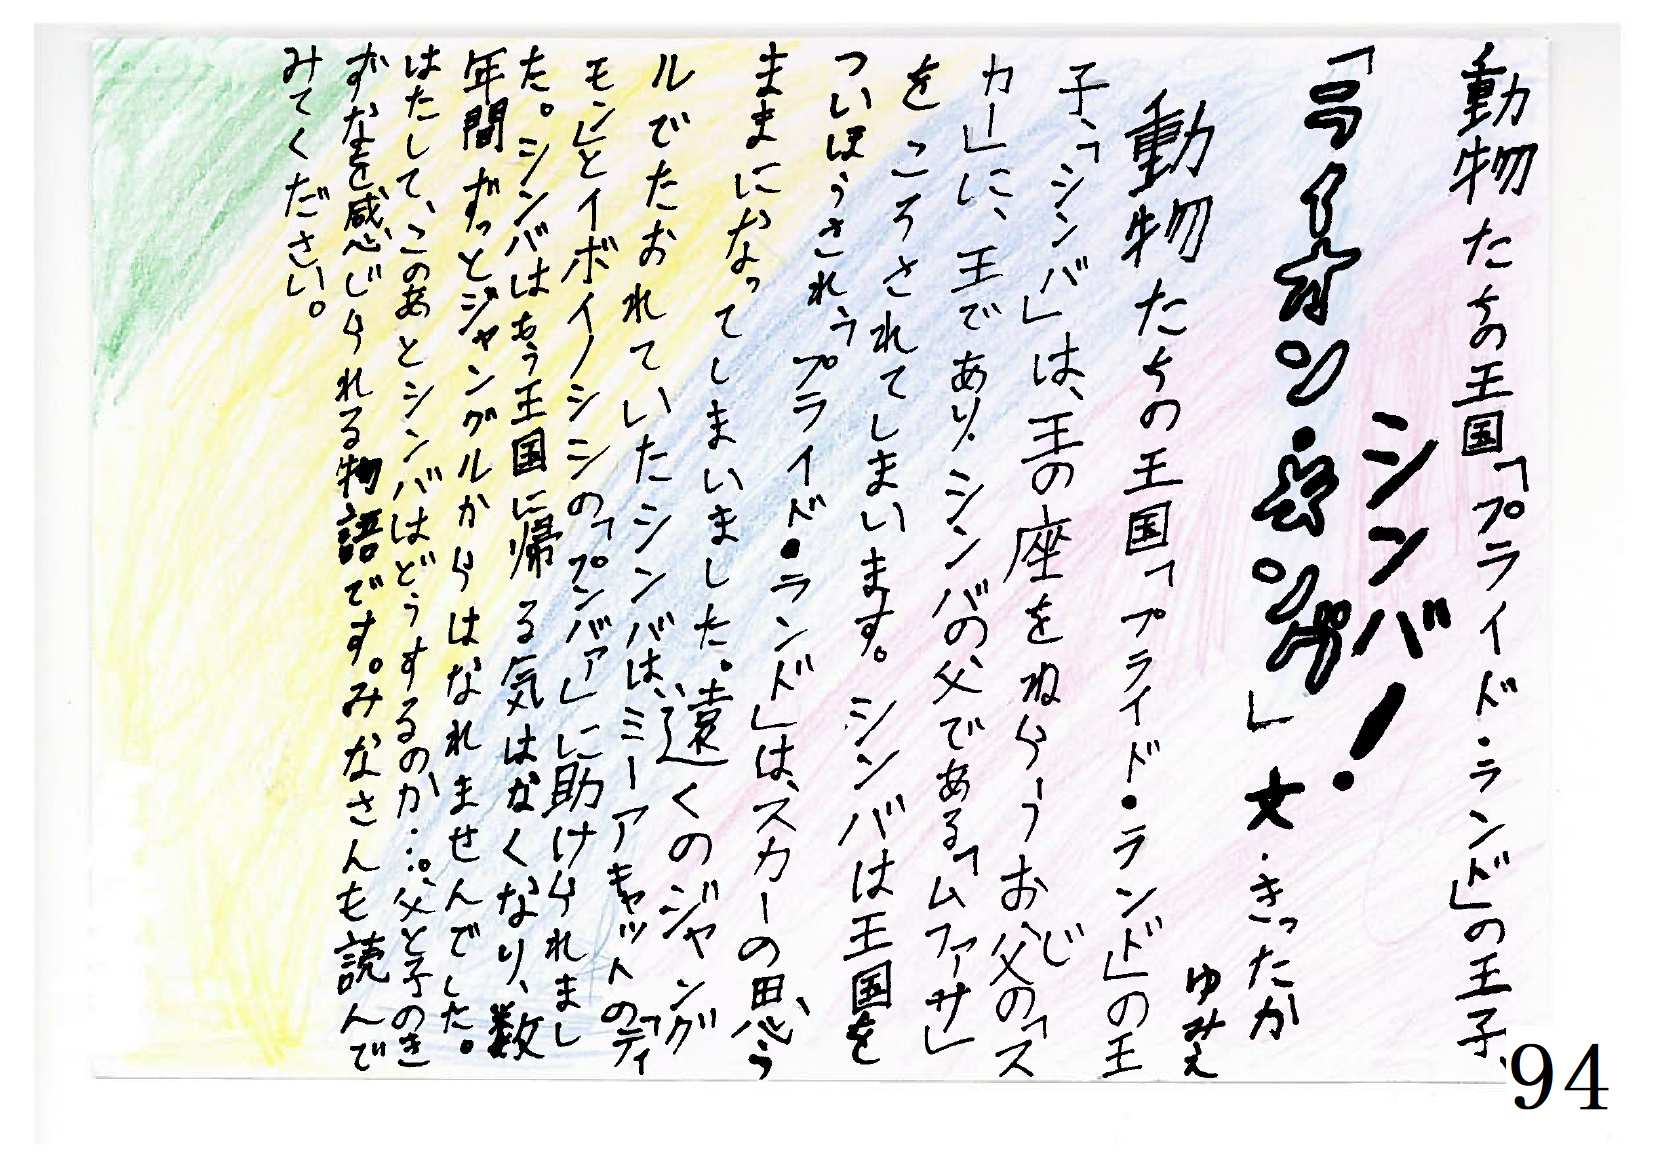 動物たちの王国「プライド・ランド」の王子、
シンバ!
「ライオン・キング」文・きったか
ゆみえ
動物たちの王国「プライド・ランド」の王
子、「シンバ」は、王の座をねらうお父の「ス
じ
カー」に、王であり、シンバの父である「ムファサ」
をころされてしまいます。シンバは王国を
ついほうされ、「プライド・ランド」は、スカーの思う
ままになってしまいました。遠くのジャング
ルでたおれていたシンバは、ミーアキャットの「ティ
モン」とイボイノシシの「プンバァ」に助けられまし
た。シンバはもう王国に帰る気はなくなり、数
年間ずっとジャングルからはなれませんでした。
はたして、このあとシンバはどうするのか…。父と子のき
ずなを感じられる物語です。みなさんも読んで
みてください。
94